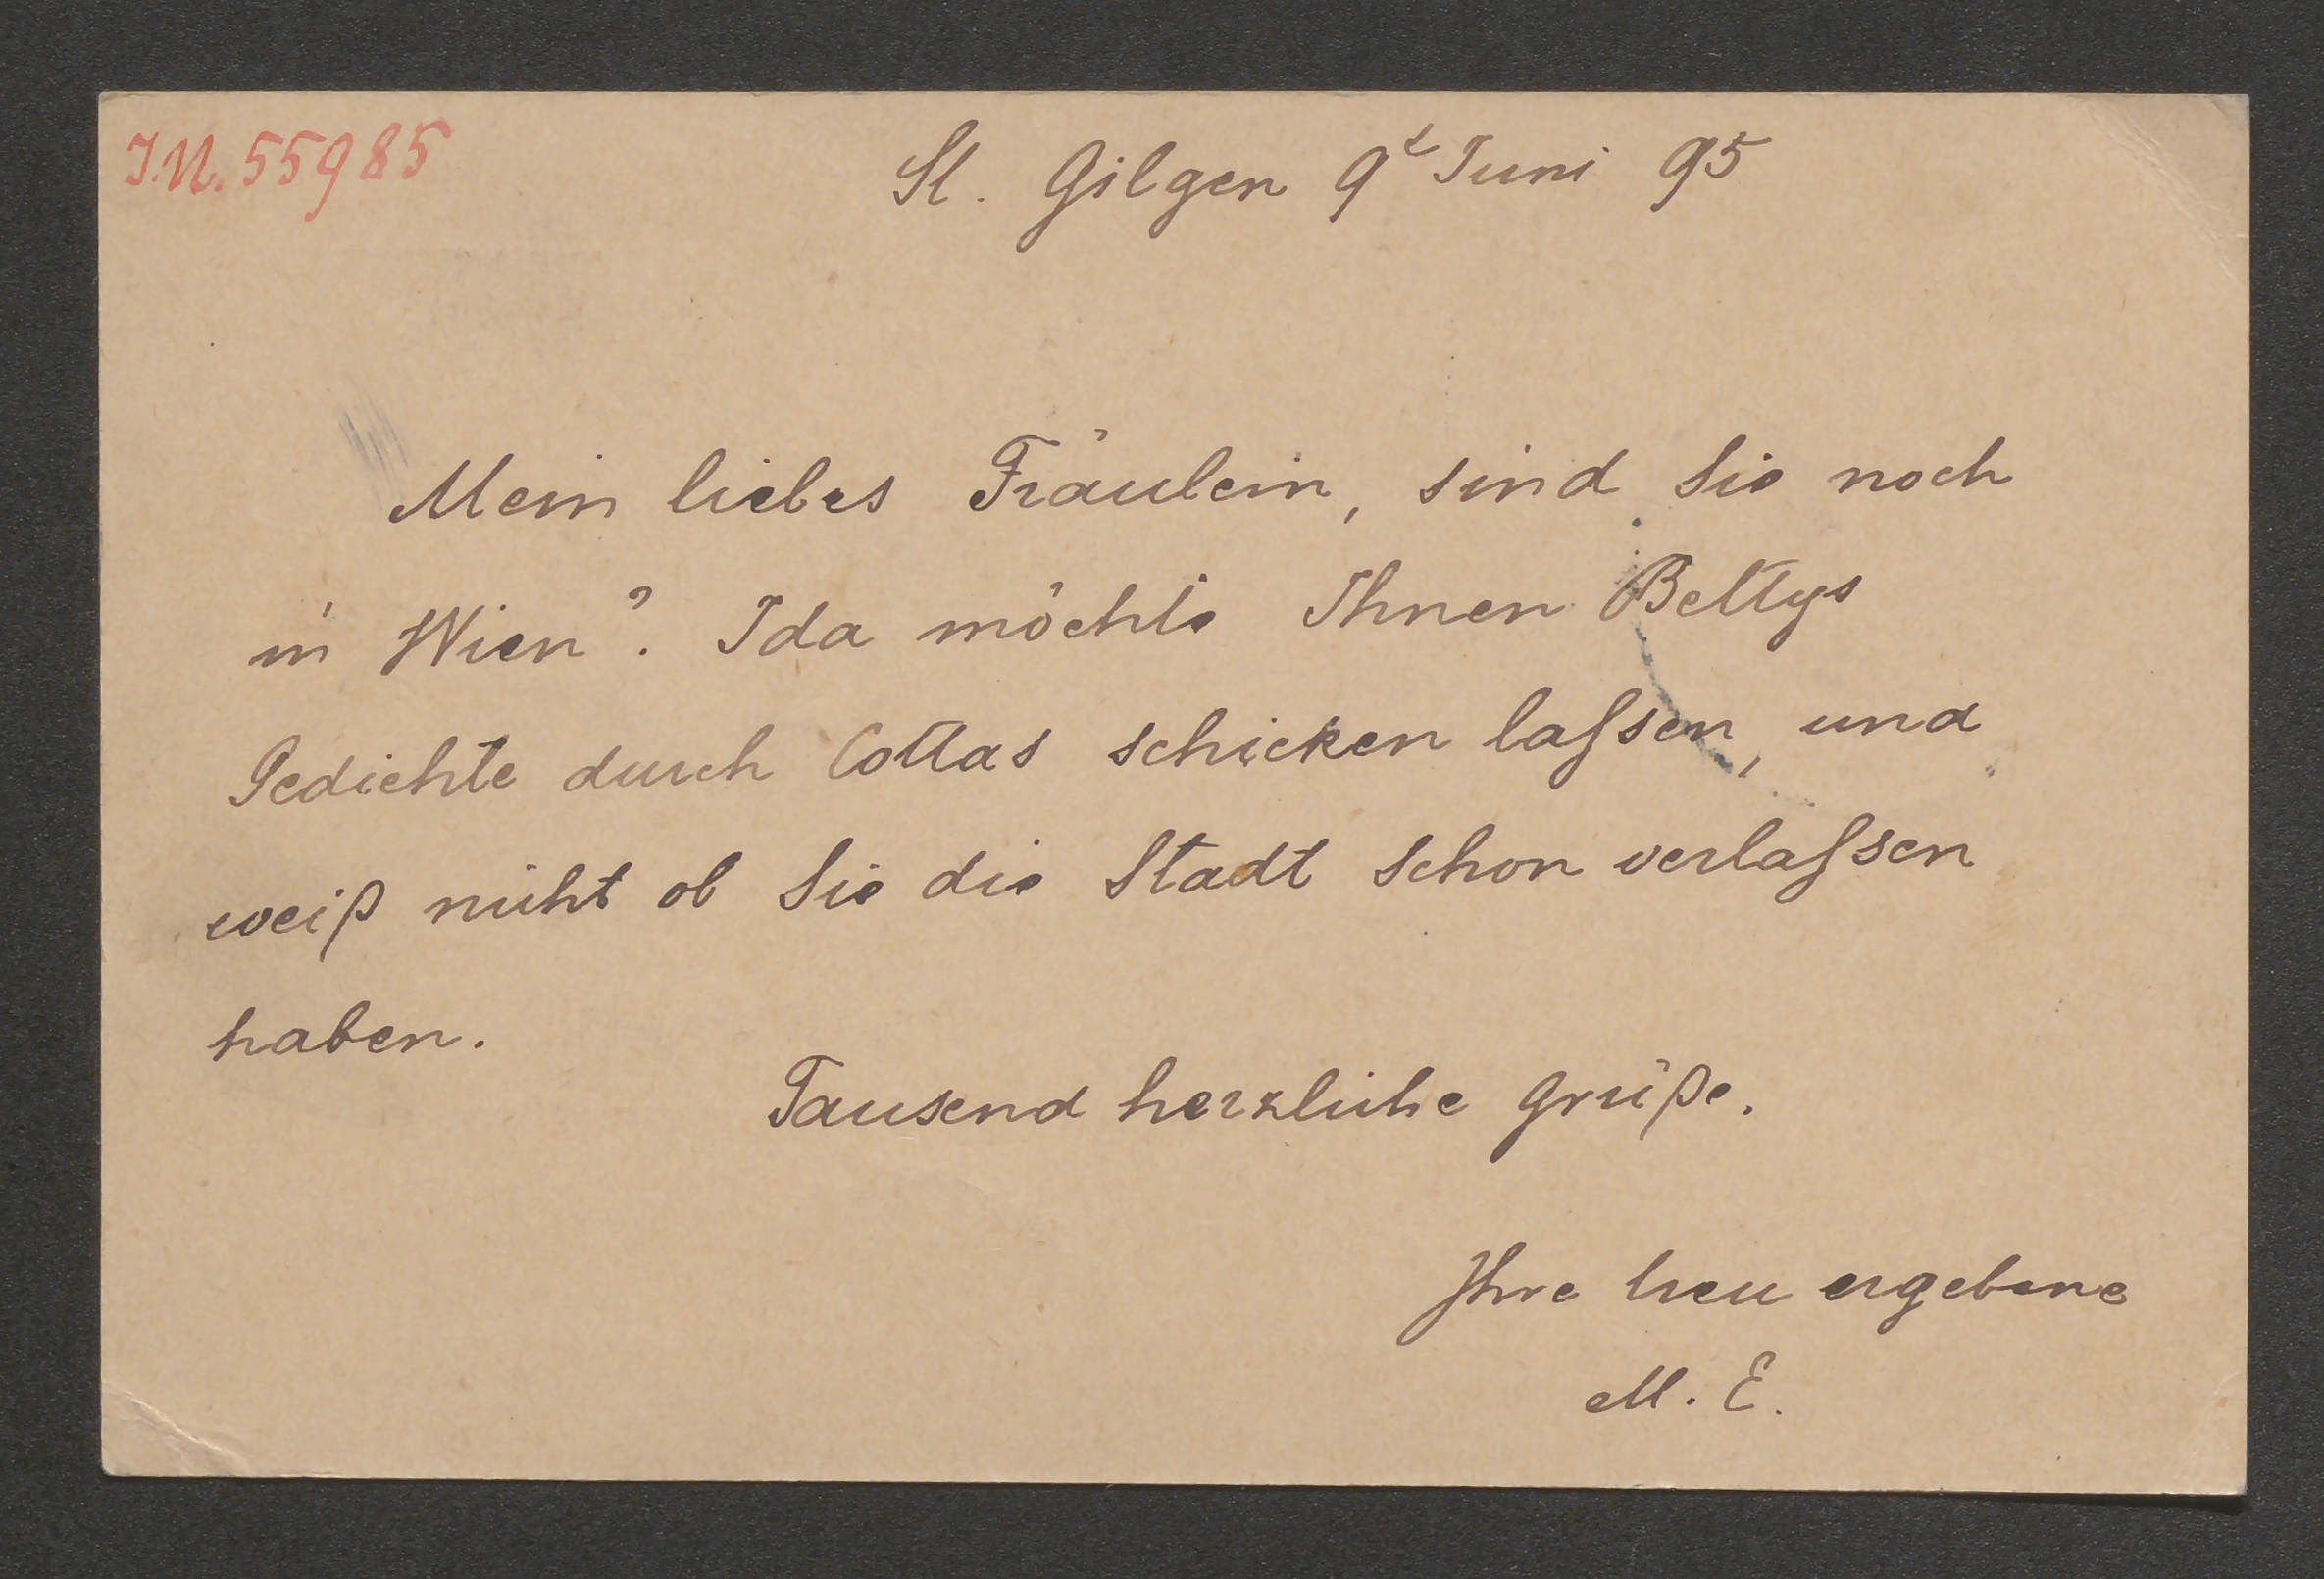 I.N. 55985
St. Gilgen 9t Juni 95
Mein liebes Fräulein, sind Sie noch
in Wien? Ida möchte Ihnen Bettys
Gedichte durch Cottas schicken laſsen, und
weiß nicht ob Sie die Stadt schon verlaſsen
haben.
Tausend herzliche Grüße.
Ihre treu ergebene
M. E.